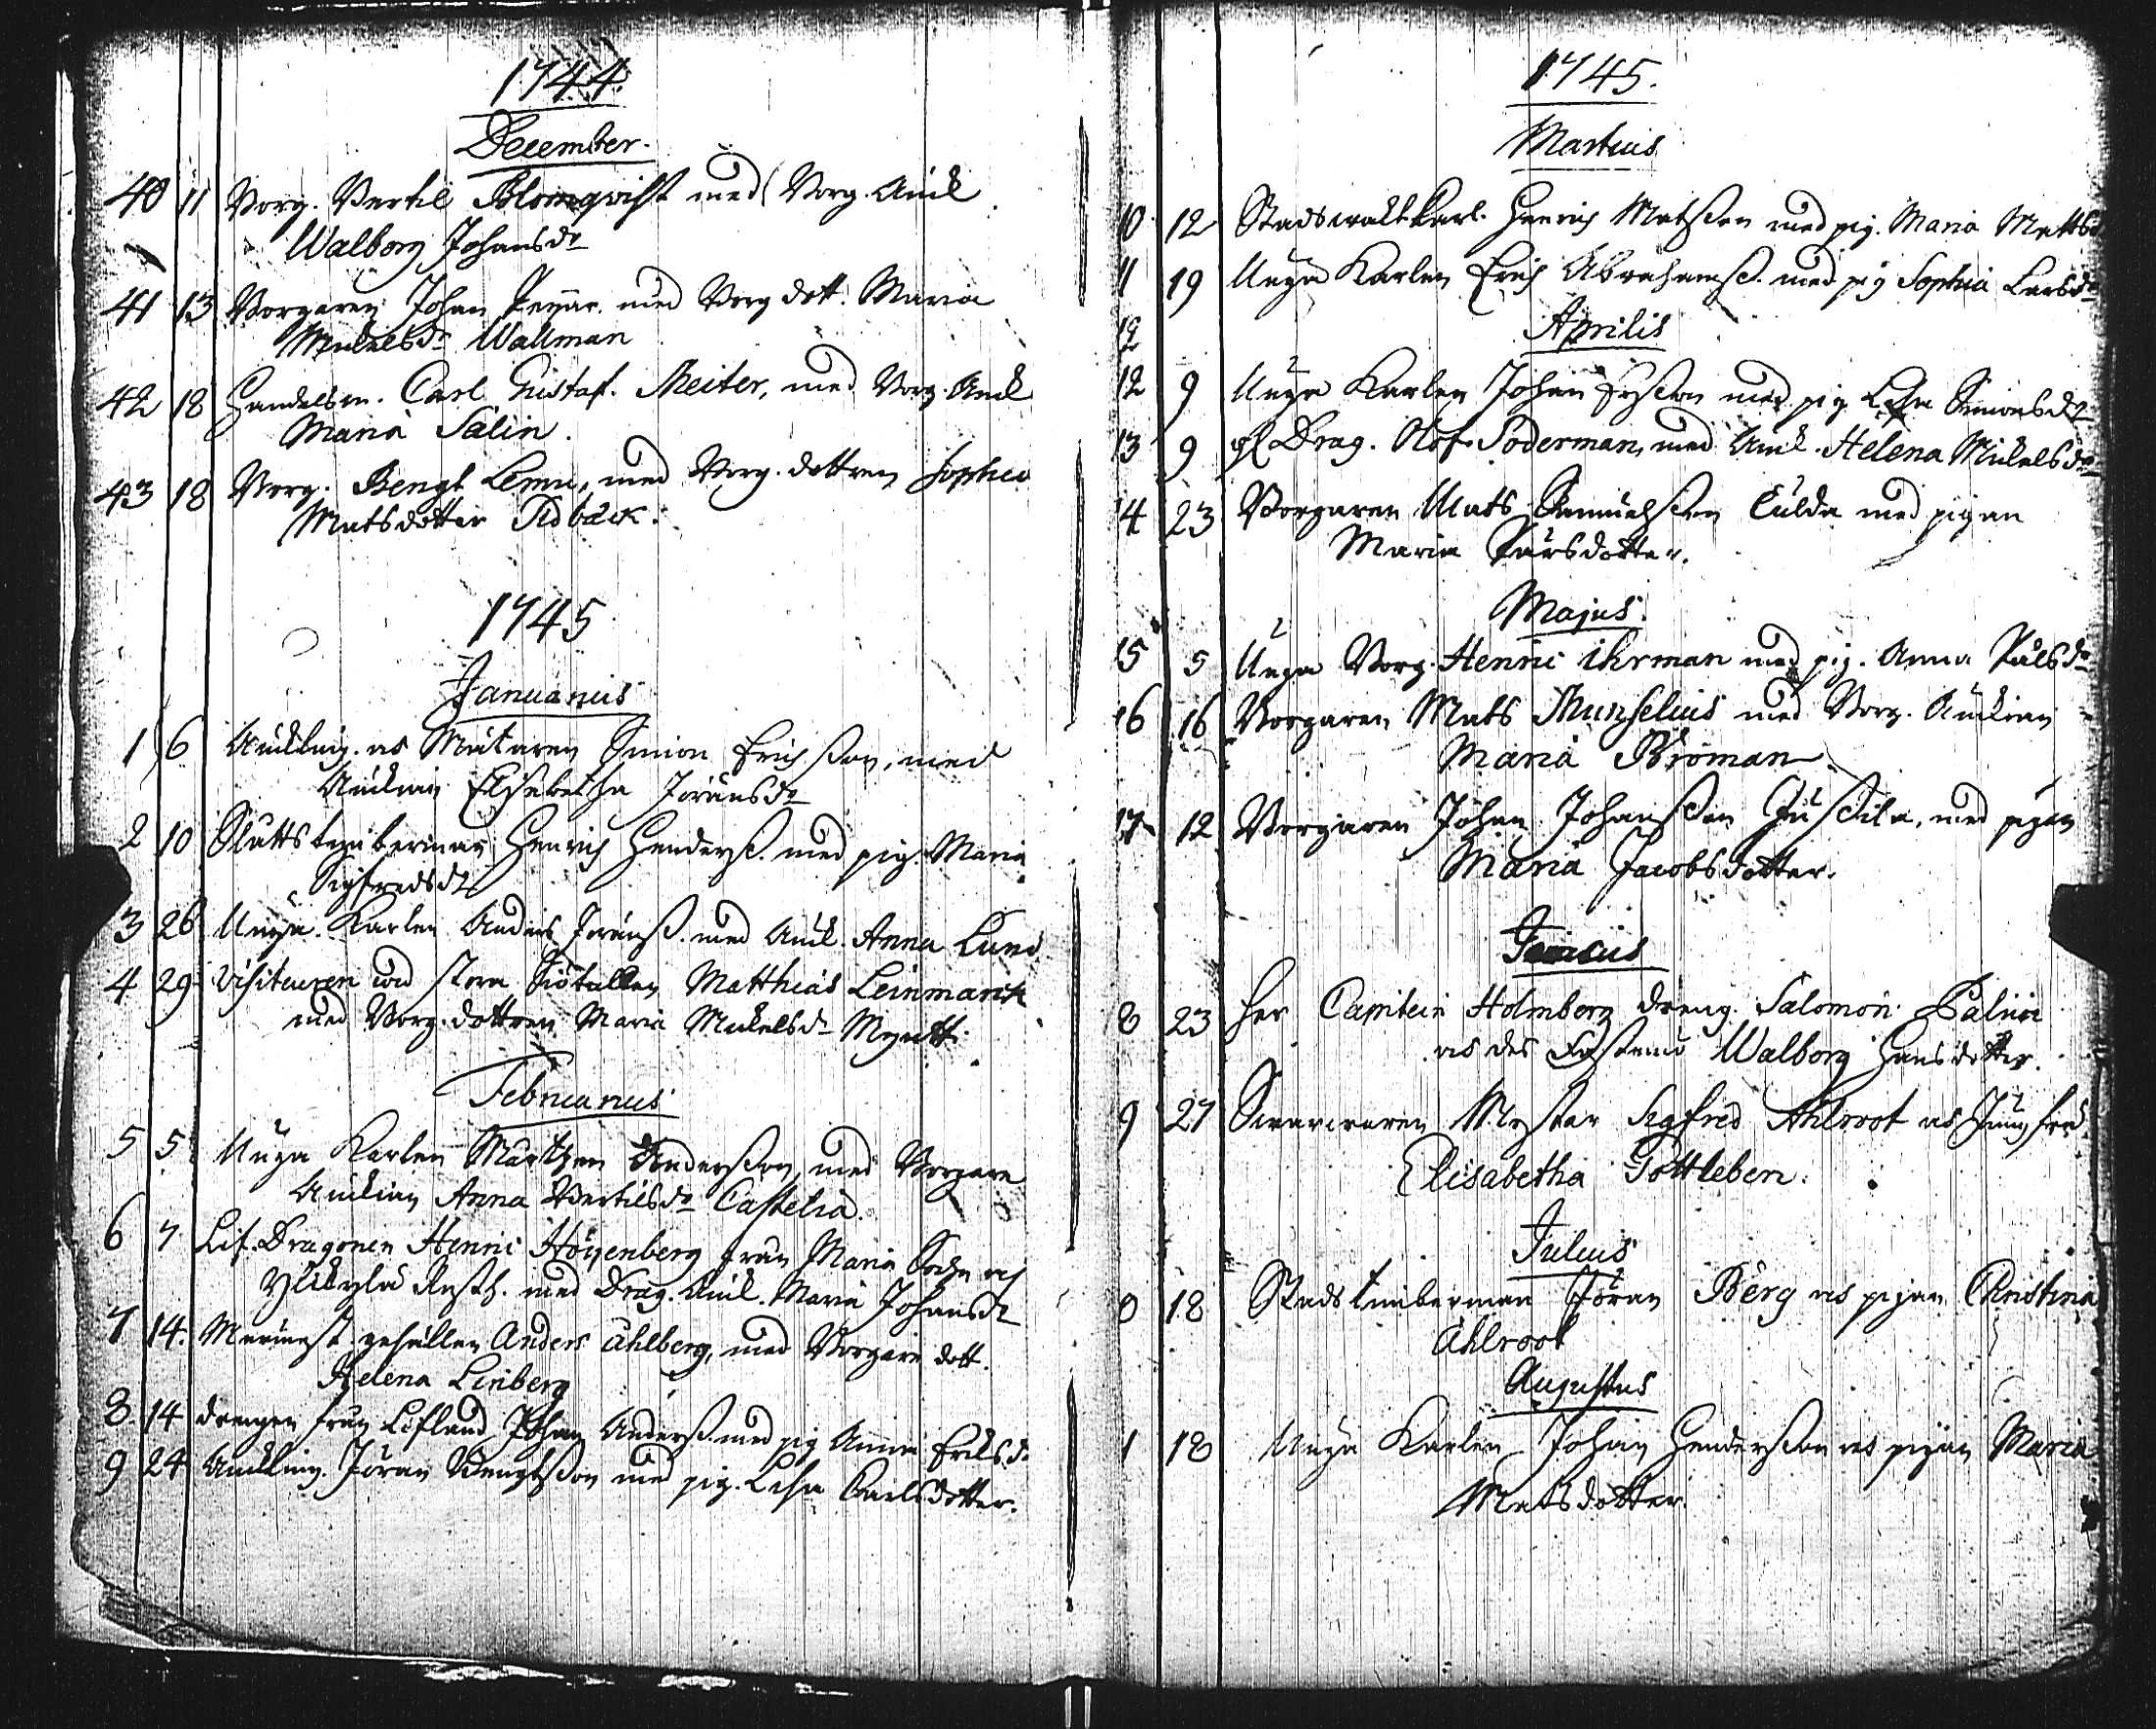 1744.
December.
40 11 Borg. Bertil Blomqvist med Borg. Änk
Walborg Johansdr
41 13 Borgaren Johan med Borg dott. Maria
Mickelsdr Wallman
42 18 Handelsm. Carl Gustaf Meiter, med Borg. Änk
Maria Salin.
43 18 Borg. Bengt Lemu, med Borg. dottren Sophia
Matsdotter Tidbäck.
1745
Januarius
1 6 Änkling. Simon Erichsson, med
Änkian Elisabetha Jöransdr
2 10 Slotts Henrich Henderss. med pig. Maria
Sigfredsdr
3 26 Unga Karlen Anders Jöranss. med Änk. Anna Lund
4 29 Visiteuren wid stora Siötullen Matthias Leinmarck
med Borg. dottren Maria Mickelsdr Myntt.
Februarius
5 5 Unga Karlen Mårthen Andersson, med Borgare
Änkian Anna Bertilsdr Castelia.
6 7 Lif. Dragonen Henric Höijenberg från Maria Sochn och
Rusth. med Drag. Änk. Maria Johansdr
7 14. gesällen Anders Ahlberg, med Borgare dott.
Helena Linberg
8 14 drengen från Lifland Johan Anderss. med pig Anna Erilsdr
9 24 Änkling. Jöran Bengtsson med pig. Lisa Carlsdotter.
1745.
Martius
10 12 Stadswaktkarl. Henrich Matsson med pig. Maria Mattsd
11 19 Unga Karlen Erich Abrahamss. med pig Sophia Larsdr
12 Aprilis
12 9 Unga Karlen Johan med pig Lisa Simonsdr
13 9 Drag. Olof Söderman, med Änk. Helena Mickelsdr
14 23 Borgaren Mats Samuelsson Culda med pigan
Maria Larsdotter.
Majus.
15 5 Unga Borg. Henric Ihrman med pig. Anna Pålsdr
16 16 Borgaren Mats Munselius med Borg. Änkian
Maria Broman
17 12 Borgaren Johan Johansson Juskila, med pigan
Maria Jacobsdotter.
Junius
8 23 Her Capitein Holmberg dreng. Salomon Palin
och des Fästemö Walborg Hansdotter.
9 27 Swarfwaren Mester Sigfred Ahlroot och Jungfru
Elisabetha Gottleben.
Julius
0 18 Stads timberman Jöran Berg och pigan Christina
Ahlroot
Augustus
1 18 Unga Karlen Johan Hendersson och pigan Maria
Matsdotter.